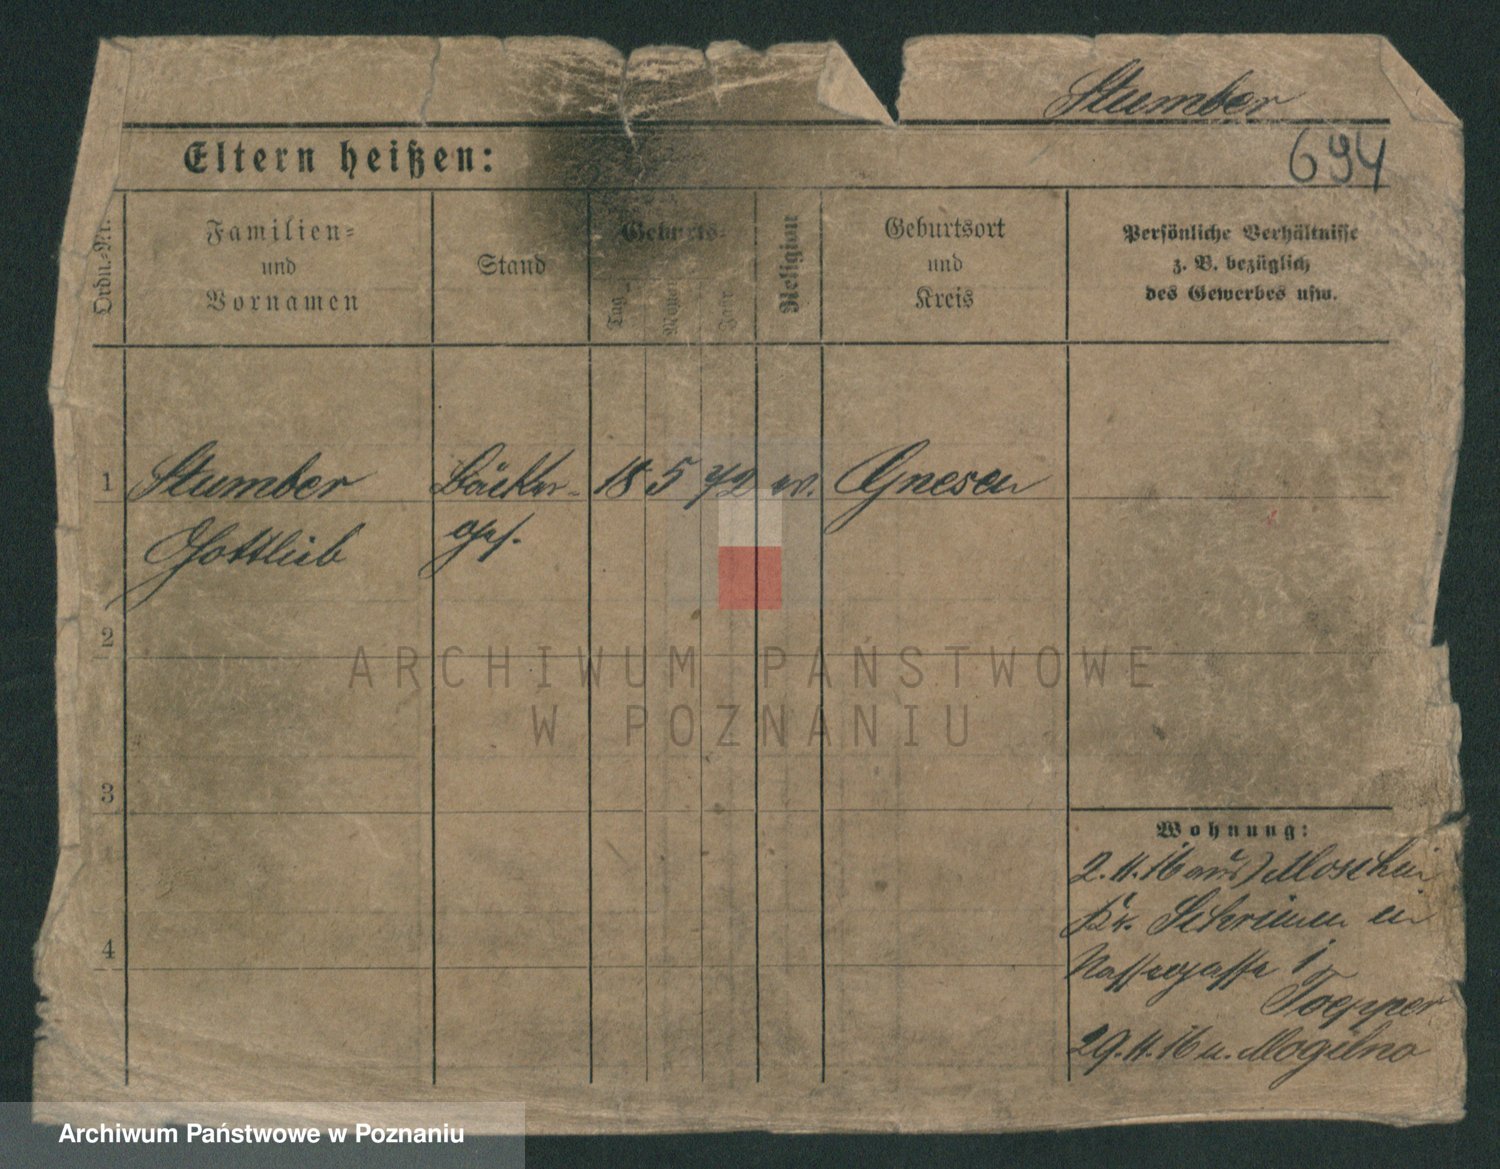 Stumber
694
Eltern heißen:
Ordn.-Nr.
Familien-
und
Vornamen
Stand
Geburts-
Tag
Monat
Jahr
Religion
Geburtsort
und
Kreis
Persönliche Verhältnisse
z. B. bezüglich
des Gewerbes usw.
1 Stumber Bäcker- 18 5 72 ev. Gnesen
Gottlieb ges.
2
3
4
Wohnung:
2.11.16 aus Moschin
Kr. Schrimm in
Nassegasse 1
Toepper
29.11.16 n. Mogilno
ARCHIWUM PAŃSTWOWE
W POZNANIU
Archiwum Państwowe w Poznaniu